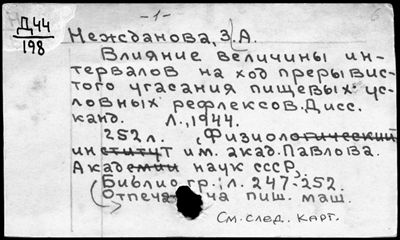 Д44
198
-1-
Нежданова, З.А.
Влияние величины ин-
тервалов на ход прерывис-
того угасания пищевых ус-
ловных рефлексов. Дисс.
канд. Л., 1944.
252 л. , Физиологический
институт им. акад. Павлова.
Академии наук СССР,
Библиогр.: л. 247-252.
Отпеча ча пиш. маш.
См. след. карт.